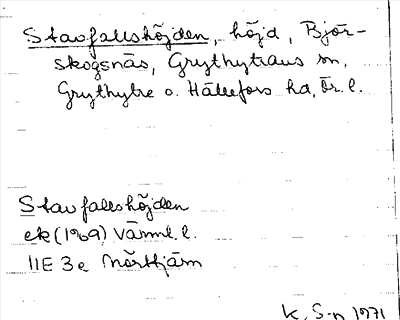 Stavfallshöjden, höjd, Björ-
skogsnäs, Grythyttans sn,
Grythytte o. Hällefors hd, Ör. l.
Stavfallshöjden
ek (1969) Värml. l.
11E 3e Norrtjärn
K. S-n 1971